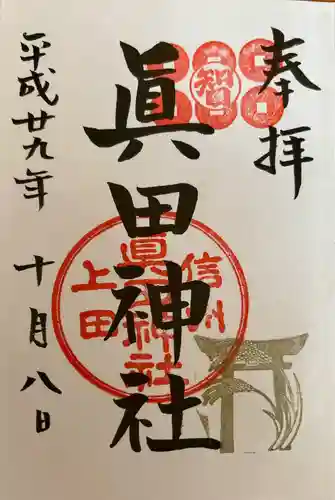 奉拝
眞田神社
智
信州
眞田神社
上田
平成廿九年 十月八日